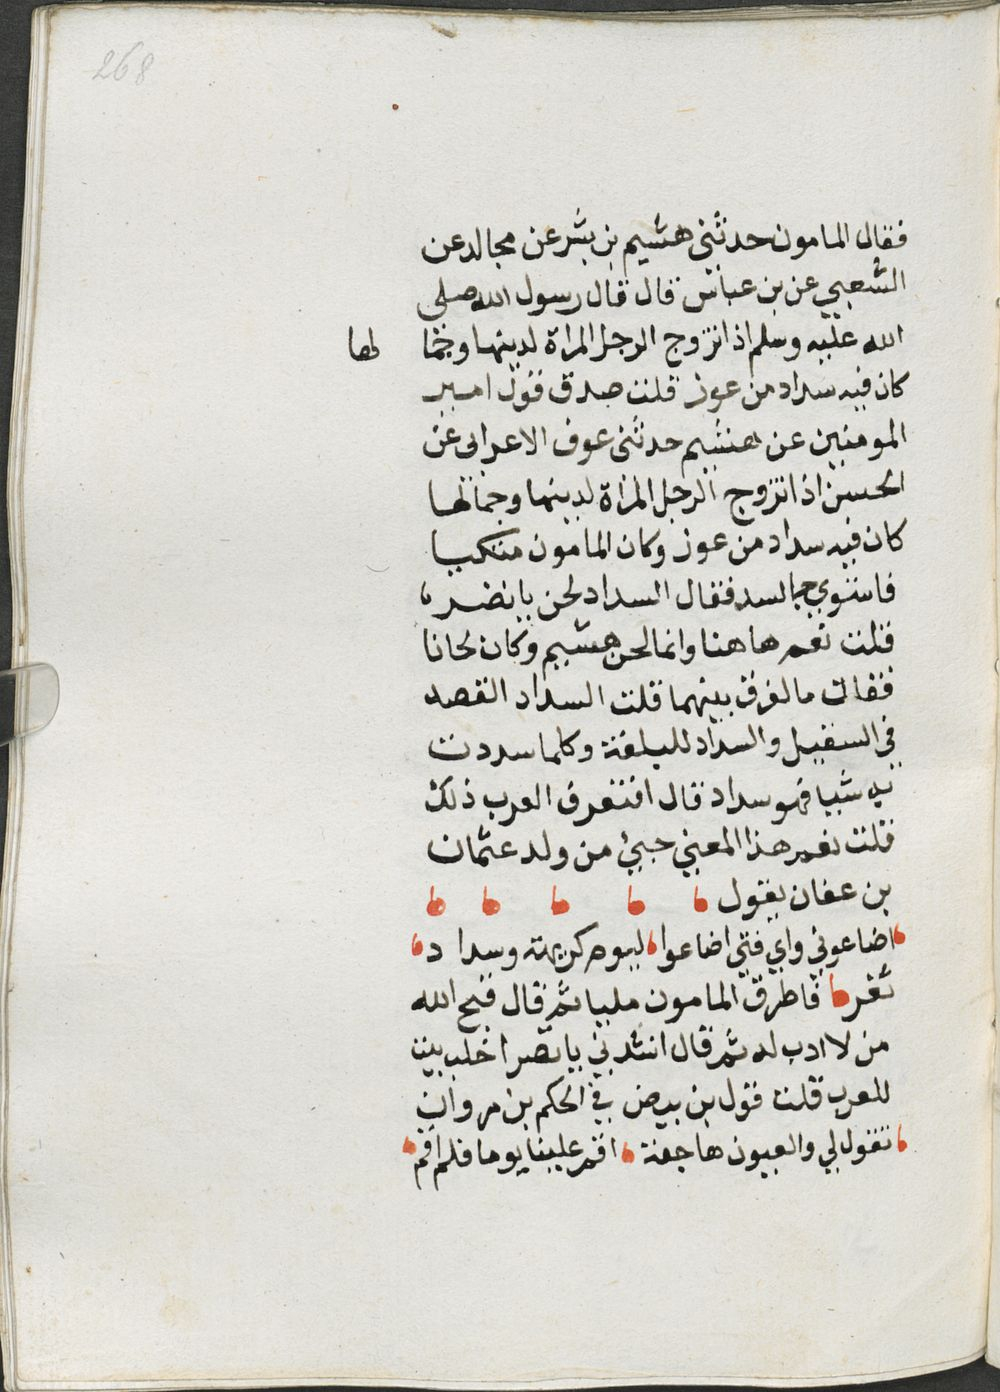 268
فقال المامون حدثني هشيم بن بشر عن مجالد عن
الشعبي عن بن عباس قال قال رسول الله صلى
الله عليه وسلم اذا تزوج الرجل المراة لدينها وجما لها
كان فيه سداد من عوز قلت صدق فول امير
المومنين عن هشيم حدثني عوف الاعرابى عن
الحسن اذا تزوج الرجل المراة لدينها وجمالها
كان فيه سداد من عوز وكان المامون متكيا
فاستوي جالسد فقال السداد لحن يا نضر،
فقلت نعم هاهنا وانما لحن هشيم وكان لحانا
فقال ما الفرق بينهما قلت السداد القصد
في السفيل والسداد للبلغة وكلما سددت
به شيا فهو سداد قال افتعرف العرب ذلك
فقلت نعم هذا المعني جبئ من ولد عثمان
بن عفان يقول
اضاعوني واي فتي اضاعوا ليوم كريهة وسداد
ثغر فاطرق المامون مليا ثم قال قبح الله
من لا ادب له ثم قال انشدني يا نضر اخلب بيت
للعرب قلت قول بن بيض في الحكم بن مروان
تقول لي والعيون هاجعة اقم علينا يوما فلم اقم